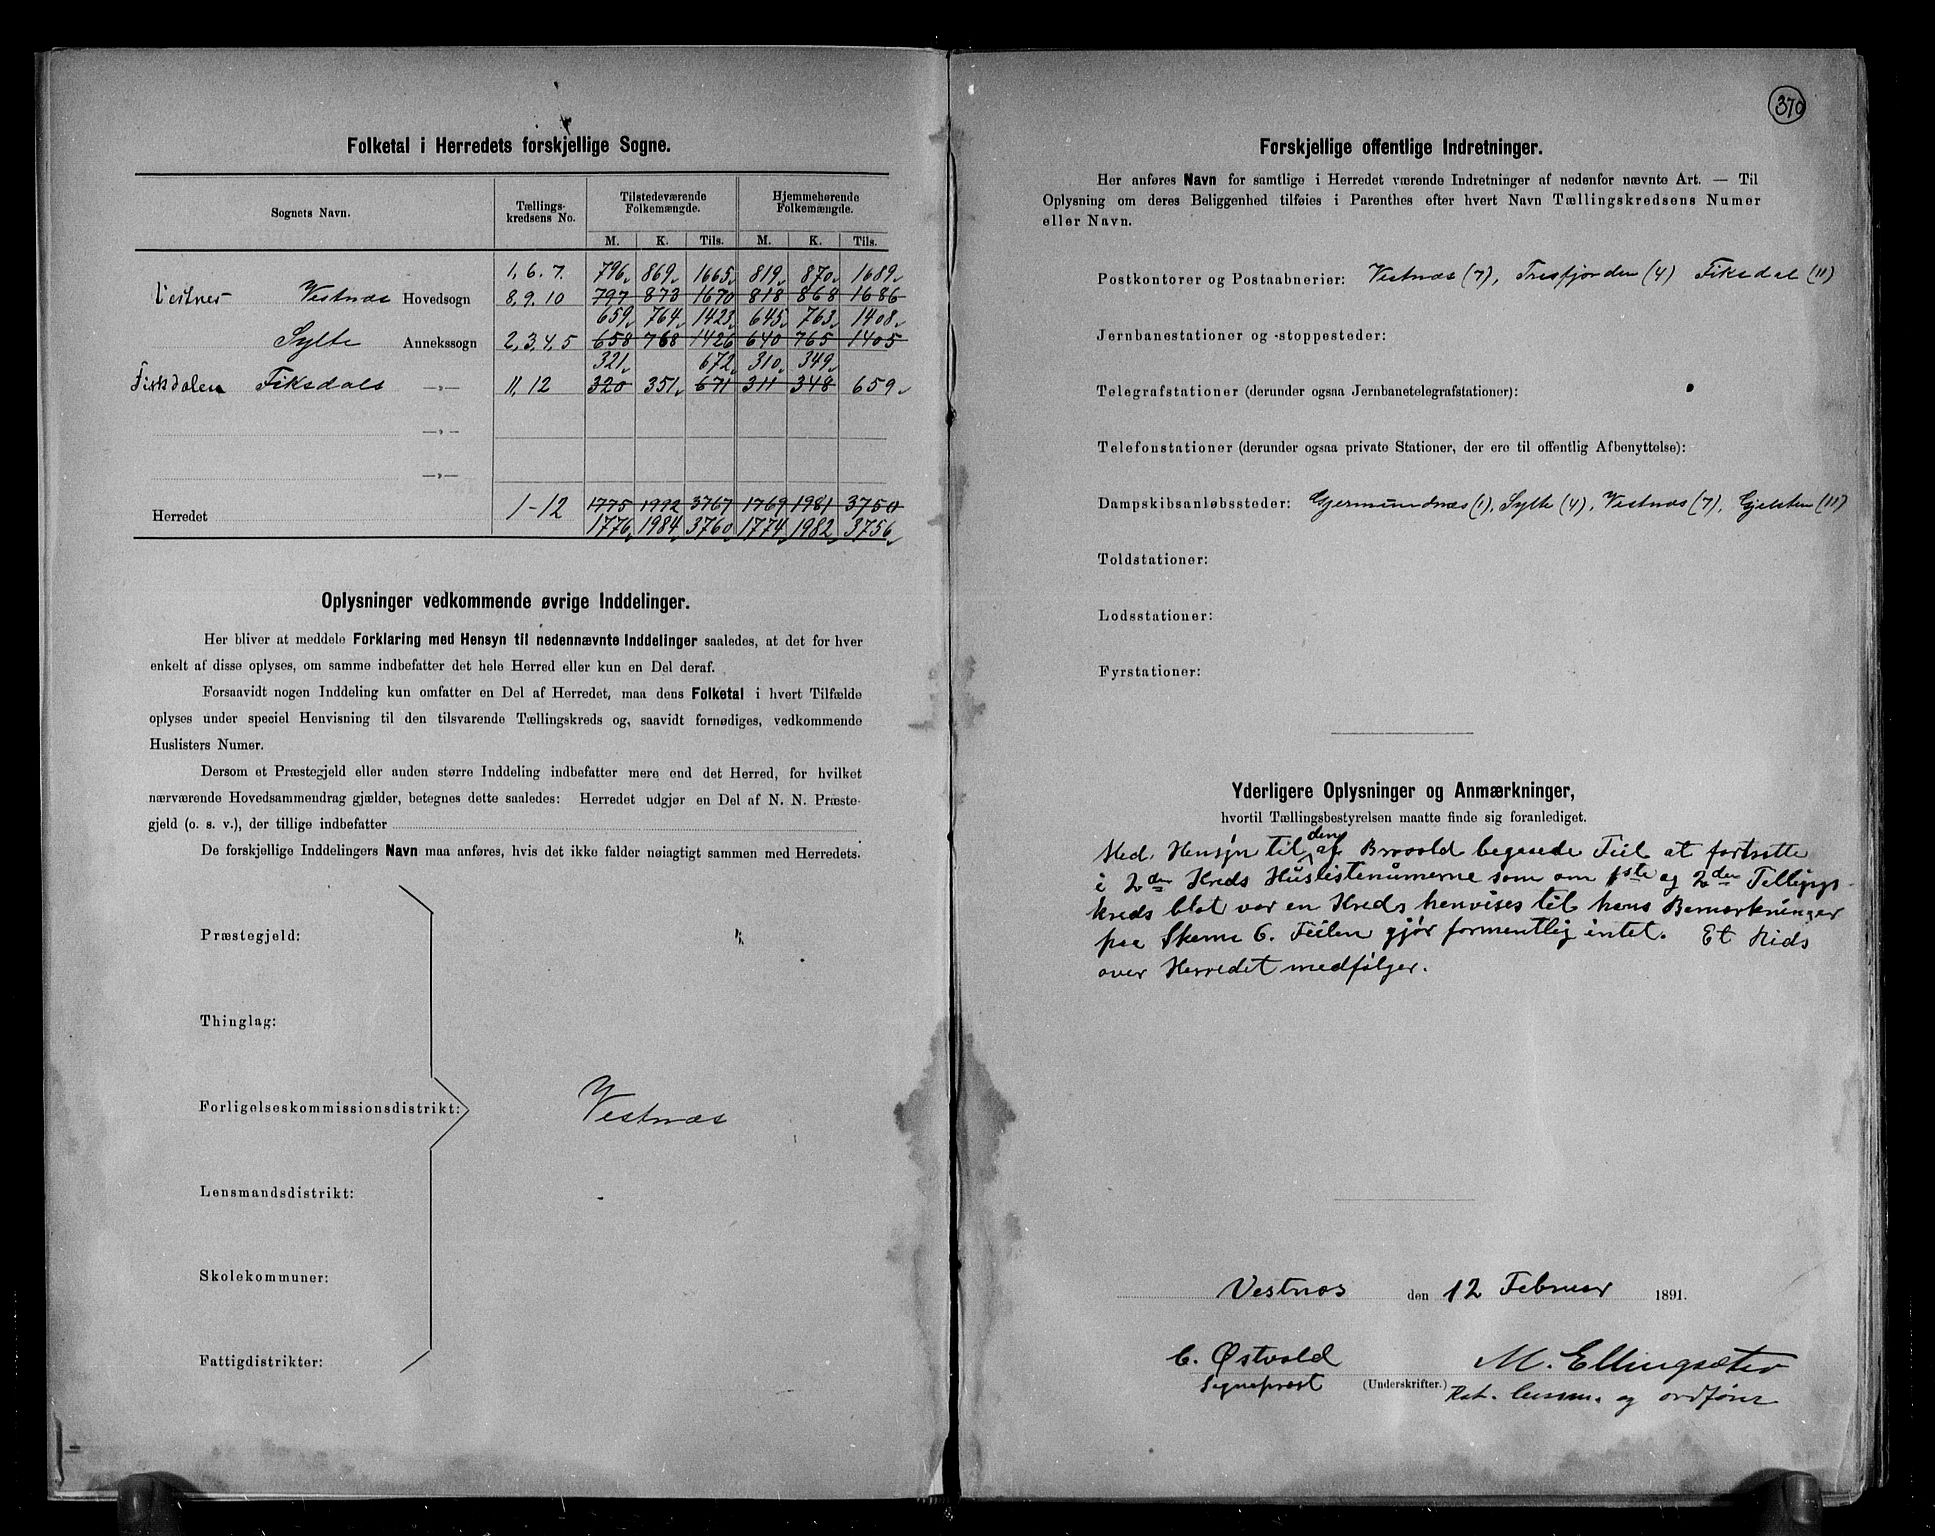 Folketal i Herredets forskjellige Sogne.
Sognets Navn. Tællings-kredsens No. Tilstedeværende Folkemængde. Hjemmehørende Folkemængde.
M. K. Tils. M. K. Tils.
1, 6. 7. 796 869 1665 819 870 1689
Vestnes Vestnæs Hovedsogn 8, 9. 10 797 873 1670 818 868 1686
659 764 1423 645 763 1408
Sylte Annekssogn 2, 3, 4, 5 658 768 1426 640 765 1405
321 672 310 349
Fiksdalen Fiksdals —„— 11, 12 320 351 671 311 348 659
—„—
—„—
1-12 1775 1992 3767 1769 1981 3750
Herredet 1776 1984 3760 1774 1982 3756
Oplysninger vedkommende øvrige Inddelinger.
Her bliver at meddele Forklaring med Hensyn til nedennævnte Inddelinger saaledes, at det for hver
enkelt af disse oplyses, om samme indbefatter det hele Herred eller kun en Del deraf.
Forsaavidt nogen Inddeling kun omfatter en Del af Herredet, maa dens Folketal i hvert Tilfælde
oplyses under speciel Henvisning til den tilsvarende Tællingskreds og, saavidt fornødiges, vedkommende
Huslisters Numer.
Dersom et Præstegjeld eller anden større Inddeling indbefatter mere end det Herred, for hvilket
nærværende Hovedsammendrag gjælder, betegnes dette saaledes: Herredet udgjør en Del af N. N. Præste-
gjeld (o. s. v.), der tillige indbefatter
De forskjellige Inddelingers Navn maa anføres, hvis det ikke falder nøiagtigt sammen med Herredets.
Præstegjeld:
Thinglag:
Forligelseskommissionsdistrikt: Vestnæs
Lensmandsdistrikt:
Skolekommuner:
Fattigdistrikter:
370
Forskjellige offentlige Indretninger.
Her anføres Navn for samtlige i Herredet værende Indretninger af nedenfor nævnte Art. — Til
Oplysning om deres Beliggenhed tilføies i Parenthes efter hvert Navn Tællingskredsens Numer
eller Navn.
Postkontorer og Postaabnerier: Vestnæs (7), Tresfjorden (4) Fiksdal (11)
Jernbanestationer og -stoppesteder:
Telegrafstationer (derunder ogsaa Jernbanetelegrafstationer):
Telefonstationer (derunder ogsaa private Stationer, der ere til offentlig Afbenyttelse):
Dampskibsanløbssteder: Gjermundnæs (1), Sylte (4), Vestnæs (7), Gjelsten (11)
Toldstationer:
Lodsstationer:
Fyrstationer:
Yderligere Oplysninger og Anmærkninger,
hvortil Tællingsbestyrelsen maatte finde sig foranlediget.
Med Hensyn til den af Brovold begaaede Feil at fortsætte
i 2den Kreds Huslistenumerne som om 1ste og 2den Tællings-
kreds blot var en Kreds henvises til hans Bemærkninger
paa Skema 6. Feilen gjør formentlig intet. Et Rids
over Herredet medfølger.
Vestnæs den 12 Februar 1891.
C. Østvold M. Ellingsæter
Sogneprest (Underskrifter.) og ordfører